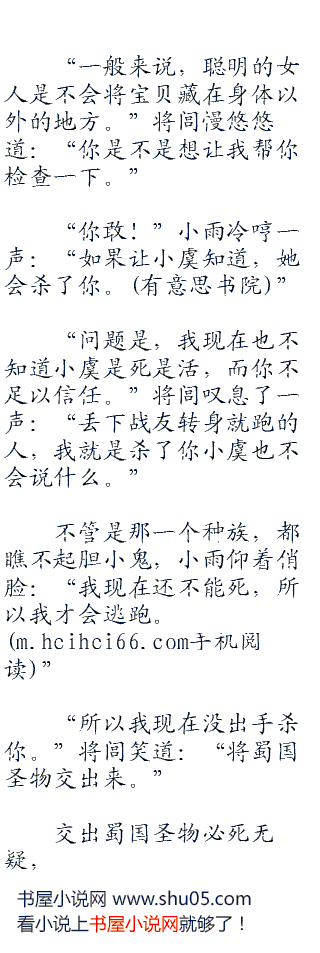 “一般来说，聪明的女
人是不会将宝贝藏在身体以
外的地方。”将闾慢悠悠
道：“你是不是想让我帮你
检查一下。”
“你敢！”小雨冷哼一
声：“如果让小虞知道，她
会杀了你。(有意思书院)”
“问题是，我现在也不
知道小虞是死是活，而你不
足以信任。”将闾叹息了一
声：“丢下战友转身就跑的
人，我就是杀了你小虞也不
会说什么。”
不管是那一个种族，都
瞧不起胆小鬼，小雨仰着俏
脸：“我现在还不能死，所
以我才会逃跑。
(m.hcihci66.com手机阅
读)”
“所以我现在没出手杀
你。”将闾笑道：“将蜀国
圣物交出来。”
交出蜀国圣物必死无
疑，
书屋小说网 www.shu05.com
看小说上书屋小说网就够了！